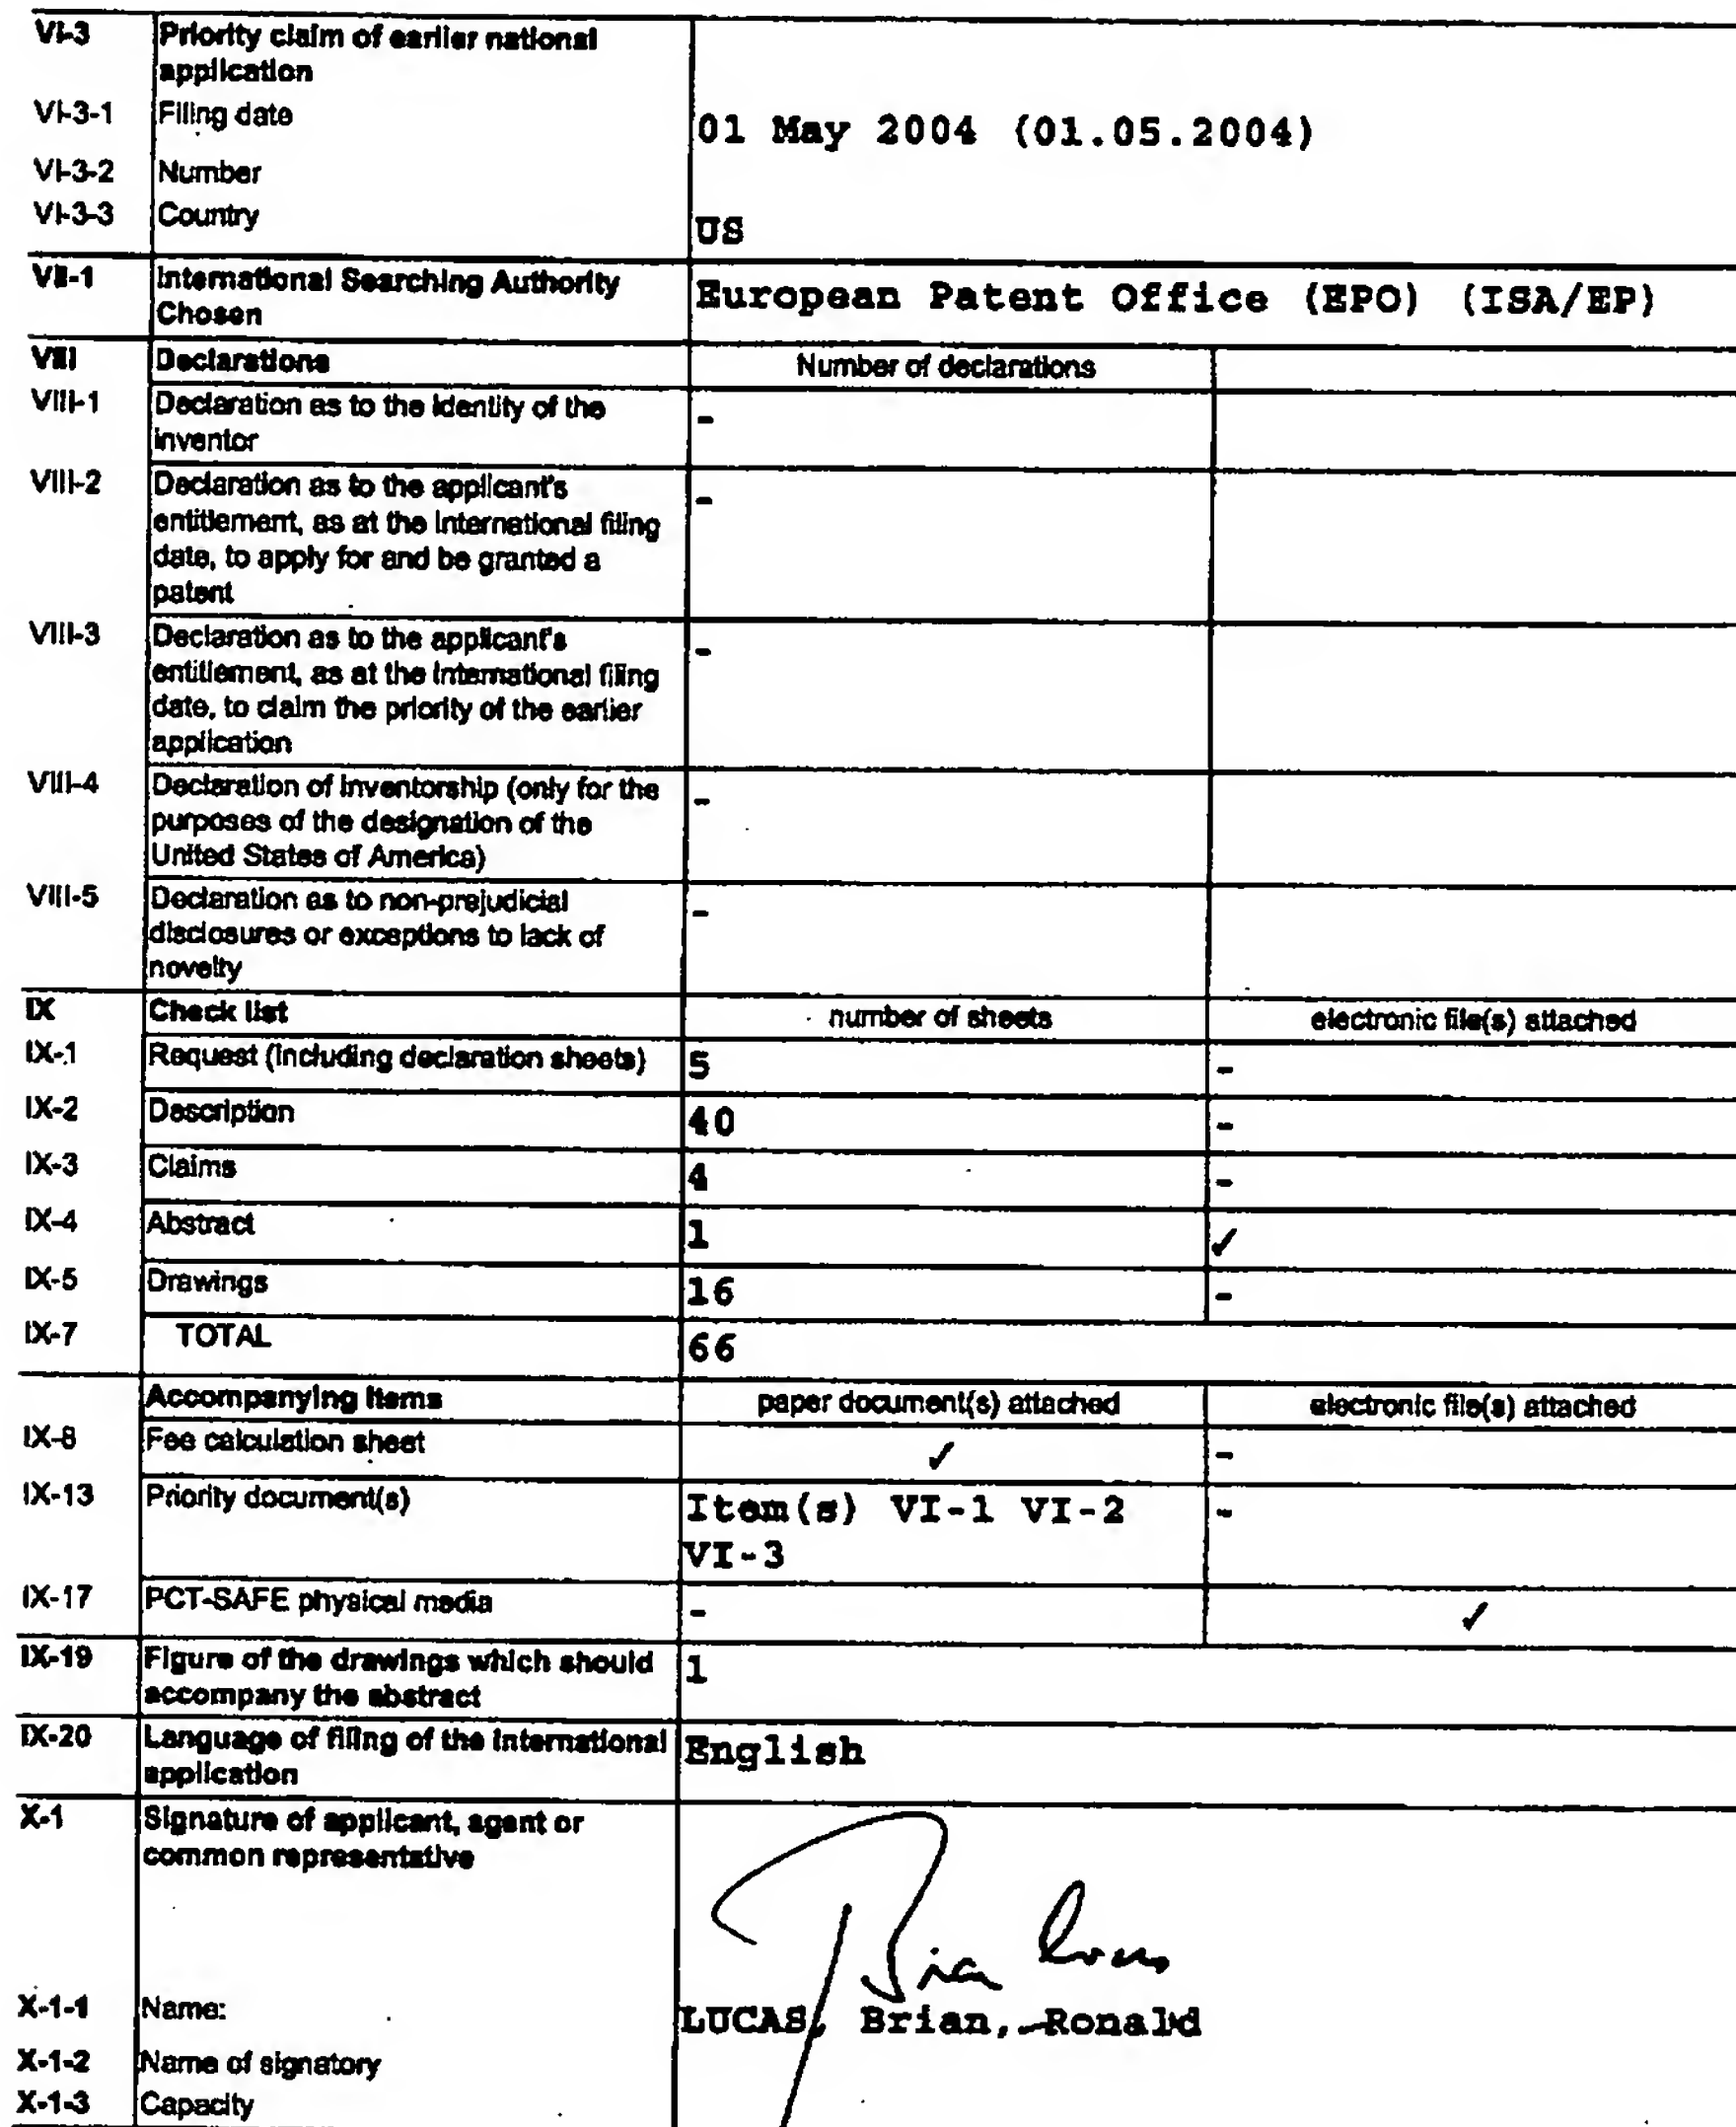 VI-3 Priority claim of earlier national
application
VI-3-1 Filing date 01 May 2004 (01.05.2004)
VI-3-2 Number
VI-3-3 Country US
VII-1 International Searching Authority European Patent Office (EPO) (ISA/EP)
Chosen
VIII Declarations Number of declarations
VIII-1 Declaration as to the identity of the -
inventor
VIII-2 Declaration as to the applicant's -
entitlement, as at the international filing
date, to apply for and be granted a
patent
VIII-3 Declaration as to the applicant's -
entitlement, as at the international filing
date, to claim the priority of the earlier
application
VIII-4 Declaration of inventorship (only for the -
purposes of the designation of the
United States of America)
VIII-5 Declaration as to non-prejudicial -
disclosures or exceptions to lack of
novelty
IX Check list number of sheets electronic file(s) attached
IX-1 Request (including declaration sheets) 5 -
IX-2 Description 40 -
IX-3 Claims 4 -
IX-4 Abstract 1 ✓
IX-5 Drawings 16 -
IX-7 TOTAL 66
Accompanying items paper document(s) attached electronic file(s) attached
IX-8 Fee calculation sheet ✓ -
IX-13 Priority document(s) Item(s) VI-1 VI-2 -
VI-3
IX-17 PCT-SAFE physical media - ✓
IX-19 Figure of the drawings which should 1
accompany the abstract
IX-20 Language of filing of the international English
application
X-1 Signature of applicant, agent or
common representative
Brian Lucas
X-1-1 Name: LUCAS, Brian, Ronald
X-1-2 Name of signatory
X-1-3 Capacity